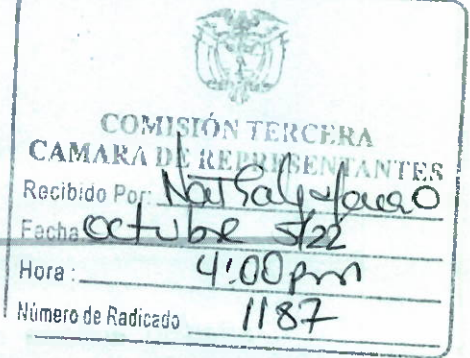 COMISIÓN TERCERA
CAMARA DE REPRESENTANTES
Recibido Por:
Fecha: octubre 5/22
Hora: 4:00 pm
Número de Radicado 1187